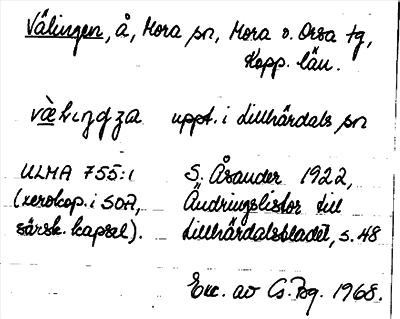 Välingen, å, Mora sn, Mora o. Orsa tg,
Kopp. län.
uppt. i Lillhärdals sn
ULMA 755:1 S. Åsander 1922,
(xerokop. i SOA, Ändringslistor till
särsk. kapsel). Lillhärdalsbladet, s. 48
Exc. av Cs. Bg. 1968.